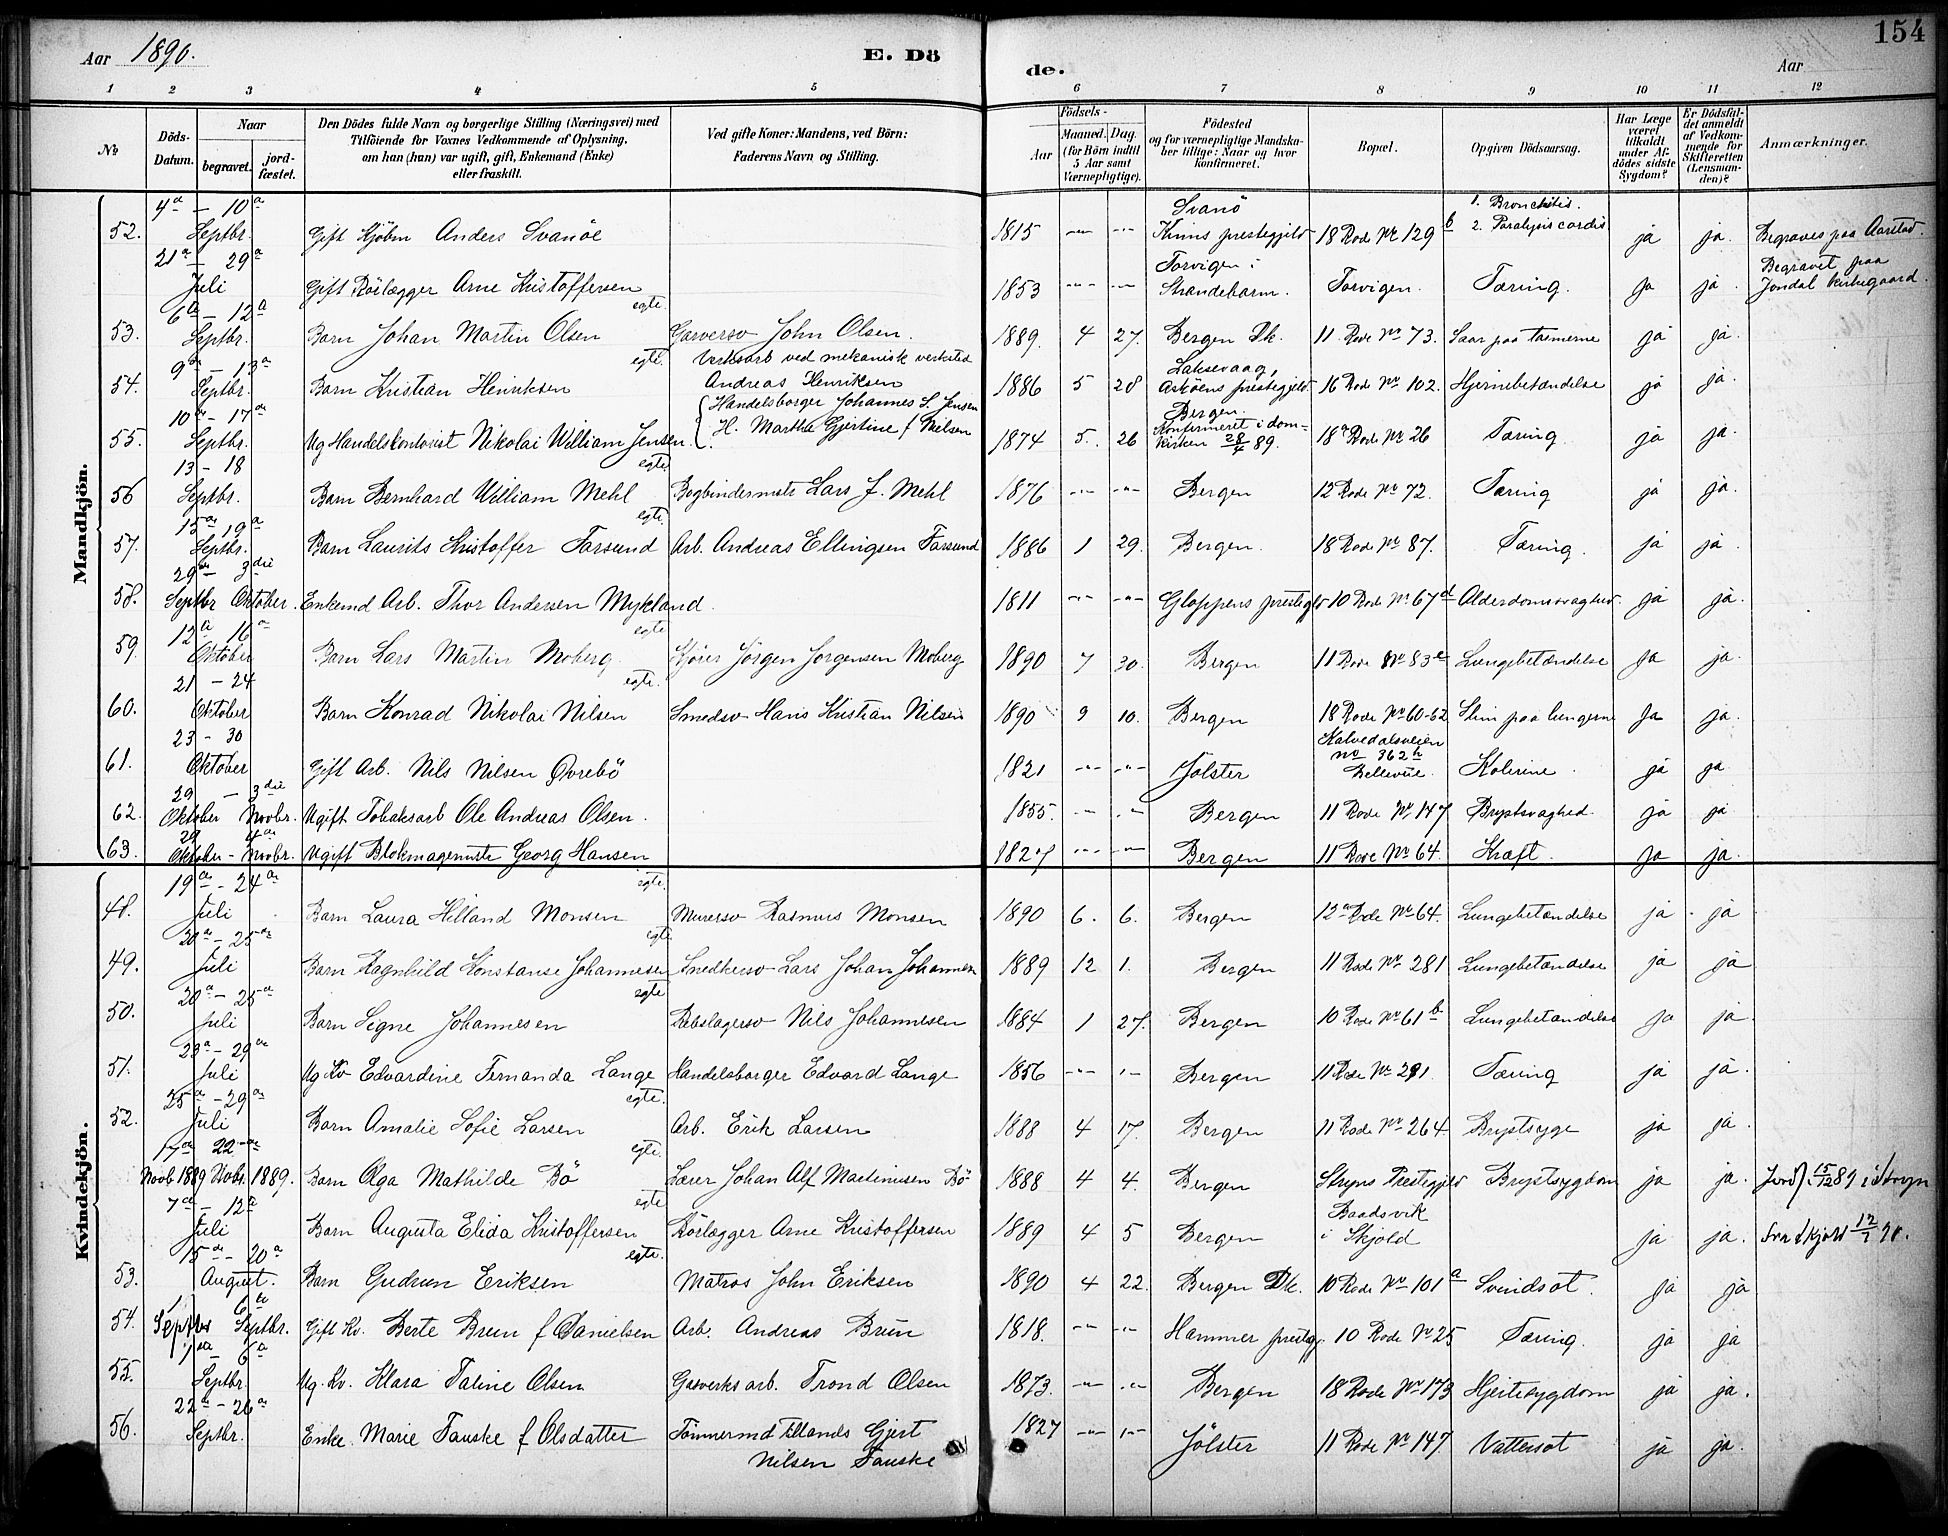 154
Aar 1890.
E. Dö
de.
Aar
1 2 3 4 5 6 7 8 9 10 11 12
№
Döds-Datum.
Naar
begravet.
jord-fæstet.
Den Dödes fulde Navn og borgerlige Stilling (Næringsvei) med
Tilföiende for Voxnes Vedkommende af Oplysning,
om han (hun) var ugift, gift, Enkemand (Enke)
eller fraskilt.
Ved gifte Koner: Mandens, ved Börn:
Faderens Navn og Stilling.
Födsels-
Aar
Maaned. Dag.
(for Börn indtil
5 Aar samt
Værnepligtige).
Födested
og for værnepligtige Mandska-
ber tillige: Naar og hvor
konfirmeret.
Bopæl.
Opgiven Dödsaarsag.
Har Læge
været
tilkaldt
under Af-
dödes sidste
Sygdom?
Er Dödsfal-
det anmeldt
af Vedkom-
mende for
Skifteretten
(Lensman-
den)?
Anmærkninger.
Mandkjön.
52. 4de – 10de Septbr. Gift Kjöbm Anders Svanöe 1815 Svanö Kinns prestegjeld 18 Rode № 129 b 1. Bronchitis. 2. Paralysis cordis ja ja. Begraves paa Aarstad.
21de – 29de Juli Gift Rörlægger Arne Kristoffersen 1853 Torvigen i Strandebarm. Torvigen. Tæring. ja ja. Begravet paa Jondal kirkegaard.
53. 6te – 12te Septbr. Barn Johan Martin Olsen egte. Garversv John Olsen. 1889. 4 27. Bergen Dk. 11. Rode № 73. Saar paa tarmerne ja ja.
54. 9de – 13de Septbr. Barn Kristian Henriksen egte. Verksarb ved mekanisk verksted Andreas Henriksen 1886 5 28 Laksevaag, Askøens prestegjeld 16 Rode № 102. Hjernebetændelse ja ja.
55. 10de – 17de Septbr. Ug Handelskontorist Nikolai William Jensen. Handelsborger Johannes S. Jensen H. Martha Gjertine f Nilsen 1874 5. 26 Bergen. Konfirmeret i dom-kirken 28/4 89. 18a Rode № 26 Tæring ja ja.
56 13 – 18 Septbr. Barn Bernhard William Mehl egte. Bogbindermstr Lars J. Mehl 1876 Bergen 12 Rode № 72. Tæring ja ja.
57. 15de 19de Septbr. Barn Laurits Kristoffer Farsund egte. Arb. Andreas Ellingsen Farsund 1886 1 29. Bergen. 18 Rode № 87. Tæring. ja ja.
58. 29de – 3die Septbr Oktober. Enkemd Arb. Thor Andersen Mykland. 1811 Gloppens prestegjld 10 Rode № 67d Alderdomssvaghed. ja ja.
59. 12te 16de Oktober Barn Lars Martin Moberg egte Kjörer Jörgen Jorgensen Moberg 1890 7 30. Bergen 11 Rode № 83e Lungebetændelse ja ja.
60. 21 – 24 Oktober Barn Konrad Nikolai Nilsen egte. Smedsv Hans Kristian Nilsen 1890 9 10. Bergen 18 Rode № 60-62 Slim paa lungerne ja ja.
61. 23 – 30 Oktober Gift Arb. Nils Nilsen Øvrebö 1821 Jölster Kalvedalsveien no 362h Bellevue. Kolerine. ja ja
62. 29 – 3die Oktober Novbr. Ugift Tobaksarb Ole Andreas Olsen. 1855. Bergen 11 Rode № 147 Brystsvaghed. ja ja
63. 29 4de Oktober – Novbr. Ugift Blokmagermstr Georg Hansen 1827 Bergen 11 Rode № 64. Kræft. ja ja.
Kvindekjön.
48. 19de – 24de Juli Barn Laura Hilland Monsen egte. Murersv Rasmus Monsen 1890 6. 6. Bergen 12a Rode № 64. Lungebetændelse ja ja
49. 20de – 25de Juli Barn Ragnhild Konstanse Johannesen egte Snedkersv Lars Johan Johannesen 1889 12 1. Bergen 11 Rode № 281 Lungebetændelse ja ja
50. 20de – 25de Juli Barn Signe Johannesen egte Rebslagersv Nils Johannesen 1884 1 27. Bergen 10 Rode № 61 b Lungebetændelse ja ja
51. 23de – 29de Juli Ug Kv Edvardine Fernanda Lange Handelsborger Edvard Lange 1856 Bergen 11 Rode № 291. Tæring ja ja.
52. 25de – 29de Juli Barn Amalie Sofie Larsen egte. Arb. Erik Larsen 1888 4 17. Bergen 11 Rode № 264 Brystsyge ja ja.
17de 22de Novb 1889 Novbr. 1889. Barn Olga Mathilde Bö egte. Lærer Johan Alf Martinusen Bö 1888 4 4. Bergen Stryns Prestegjeld Brystsygdom ja ja. Jordf 15/12 89 i Stryn
7de – 12te Juli Barn Augusta Elida Kristoffersen egte Rörlægger Arne Kristoffersen 1889 4 5 Bergen Baadsvik i Skjold ja ja. fra Skjold 12/7 90.
53. 15de – 20de August. Barn Gudrun Eriksen egte. Matros John Eriksen 1890 4 22. Bergen Dk. 10 Rode № 101 a Svindsot. ja ja
54. 1 6te Septbr Septbr. Gift Kv. Berte Brun f Danielsen Arb. Andreas Brun 1818. Hammer prestegj. 10 Rode № 25 Tæring. ja ja
55. 1ste – 6te Septbr. Ug. Kv. Klara Taline Olsen Gasverksarb. Trond Olsen 1873. Bergen 18 Rode № 173 Hjertesygdom ja ja.
56. 22de – 26de Septbr. Enke Marie Fauske f Olsdatter Tömmermd Gjert Nilsen Fauske 1827 Jölster 11 Rode № 147. Vattersot ja ja.